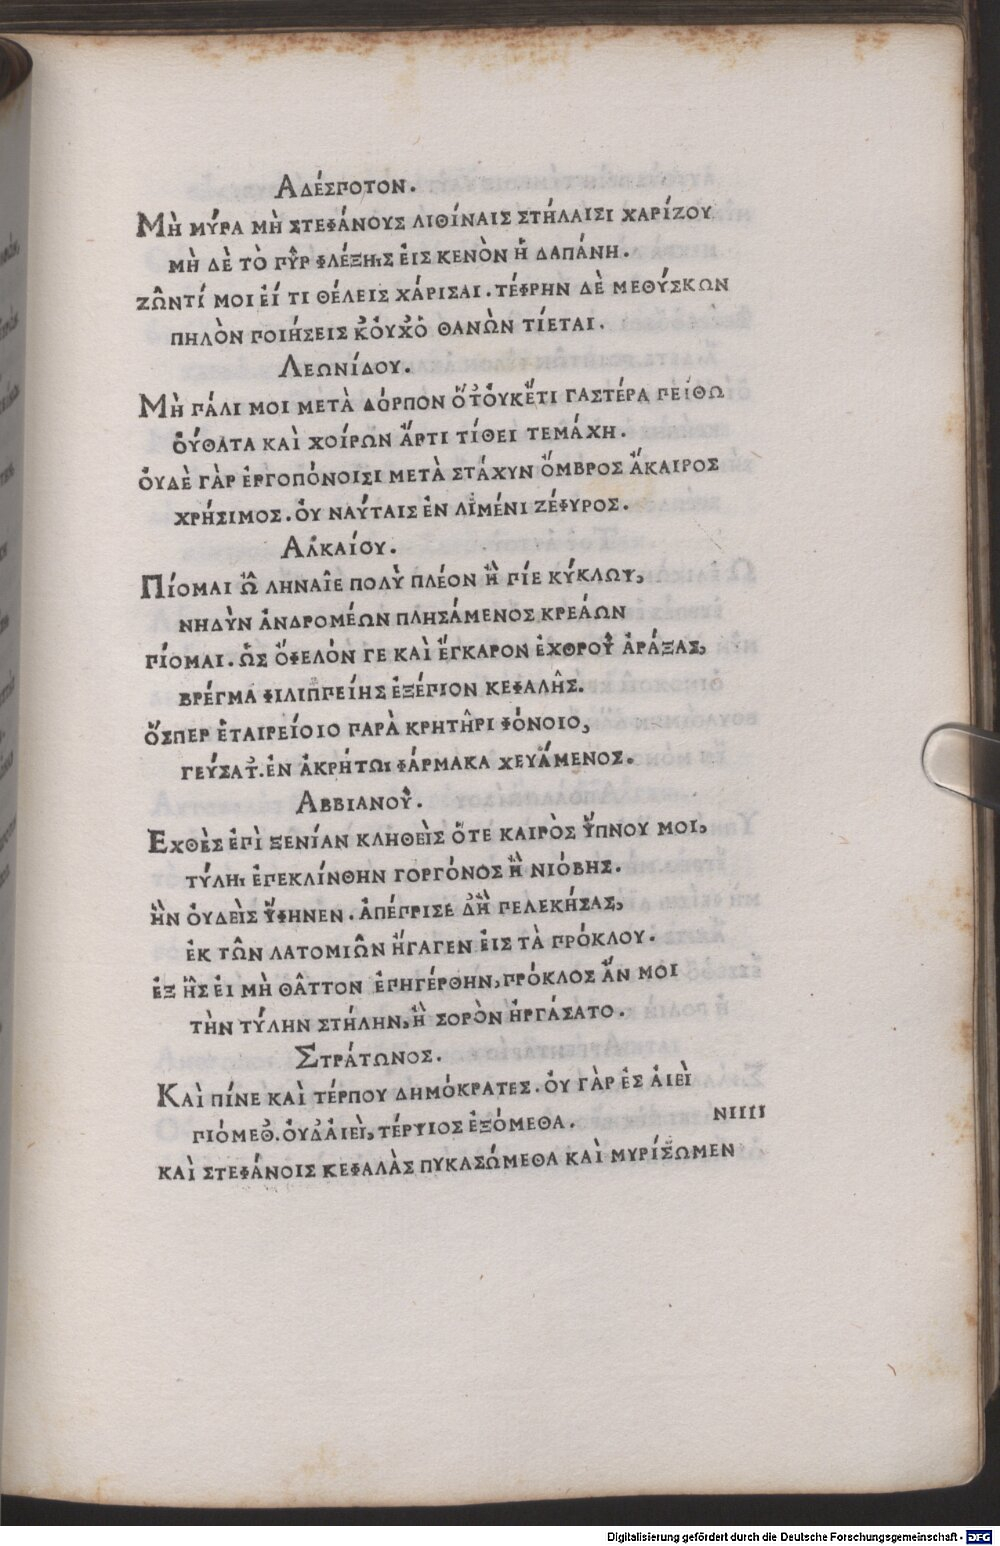 ΑΔΈΣΠΟΤΟΝ.
ΜῊ ΜΎΡΑ ΜῊ ΣΤΕΦΆΝΟΥΣ ΛΙΘΊΝΑΙΣ ΣΤΉΛΑΙΣΙ ΧΑΡΊΖΟΥ
ΜῊ ΔῈ ΤῸ ΠΥ͂Ρ ΦΛΈΞΗιΣ ἘΙΣ ΚΕΝῸΝ Ἡ ΔΑΠΆΝΗ.
ΖΩ͂ΝΤΊ ΜΟΙ ἘΊ ΤΙ ΘΈΛΕΙΣ ΧΆΡΙΣΑΙ. ΤΈΦΡΗΝ ΔῈ ΜΕΘΎΣΚΩΝ
ΠΗΛῸΝ ΠΟΙΉΣΕΙΣ ΚὈΥΧὉ ΘΑΝῺΝ ΤΊΕΤΑΙ.
ΛΕΩΝΊΔΟΥ.
ΜῊ ΠΆΛΙ ΜΟΙ ΜΕΤᾺ ΔΌΡΠΟΝ ὍΤ᾽ὈΥΚΈΤΙ ΓΑΣΤΈΡΑ ΠΕΊΘΩ
ὈΎΘΑΤΑ ΚΑῚ ΧΟΊΡΩΝ ἌΡΤΙ ΤΊΘΕΙ ΤΕΜΆΧΗ.
ὈΥΔῈ ΓᾺΡ ἘΡΓΟΠΌΝΟΙΣΙ ΜΕΤᾺ ΣΤΆΧΥΝ ὌΜΒΡΟΣ ἌΚΑΙΡΟΣ
ΧΡΉΣΙΜΟΣ. ὈΥ ΝΑΎΤΑΙΣ ἘΝ ΛΙΜΈΝΙ ΖΈΦΥΡΟΣ.
ΑΛΚΑΊΟΥ.
ΠΊΟΜΑΙ Ὦ ΛΗΝΑΙ͂Ε ΠΟΛῪ ΠΛΈΟΝ Ἢ ΠΊΕ ΚΎΚΛΩΨ,
ΝΗΔῪΝ ἈΝΔΡΟΜΈΩΝ ΠΛΗΣΆΜΕΝΟΣ ΚΡΕΆΩΝ
ΠΊΟΜΑΙ. ὩΣ ὌΦΕΛΌΝ ΓΕ ΚΑῚ ἜΓΚΑΡΟΝ ἘΧΘΡΟΥ͂ ἈΡΆΞΑΣ,
ΒΡΈΓΜΑ ΦΙΛΙΠΠΕΊΗΣ ἘΞΈΠΙΟΝ ΚΕΦΑΛΗ͂Σ.
ὍΣΠΕΡ ἙΤΑΙΡΕΊΟΙΟ ΠΑΡᾺ ΚΡΗΤΗ͂ΡΙ ΦΌΝΟΙΟ,
ΓΕΎΣΑΤ᾽. ἘΝ ἈΚΡΉΤΩι ΦΆΡΜΑΚΑ ΧΕΥΆΜΕΝΟΣ.
ΑΒΒΙΑΝΟΥ͂.
ἘΧΘῈΣ ἘΠῚ ΞΕΝΊΑΝ ΚΛΗΘΕῚΣ ὍΤΕ ΚΑΙΡῸΣ ὝΠΝΟΥ ΜΟΙ,
ΤΎΛΗι ἘΠΕΚΛΊΝΘΗΝ ΓΟΡΓΌΝΟΣ Ἢ ΝΙΌΒΗΣ.
ἫΝ ὈΥΔΕῚΣ ὝΦΗΝΕΝ. ἈΠΈΠΡΙΣΕ Δ᾽Ἢ ΠΕΛΕΚΉΣΑΣ,
ἘΚ ΤΩ͂Ν ΛΑΤΟΜΙΩ͂Ν ἬΓΑΓΕΝ ἘΙΣ ΤᾺ ΠΡΌΚΛΟΥ.
ἘΞ ἯΣ ἘΙ ΜῊ ΘΑ͂ΤΤΟΝ ἘΠΗΓΈΡΘΗΝ, ΠΡΌΚΛΟΣ ἊΝ ΜΟΙ
ΤῊΝ ΤΎΛΗΝ ΣΤΉΛΗΝ, Ἢ ΣΟΡῸΝ ἨΡΓΆΣΑΤΟ.
ΣΤΡΆΤΩΝΟΣ.
ΚΑῚ ΠΊΝΕ ΚΑῚ ΤΈΡΠΟΥ ΔΗΜΌΚΡΑΤΕΣ. ὈΥ ΓᾺΡ ἘΣ ἈΙΕῚ
ΠΙΌΜΕΘ᾽. ὈΥΔ᾽ἈΙΕῚ, ΤΈΡΨΙΟΣ ἘΞΌΜΕΘΑ.
ΝΙΙΙΙ
ΚΑῚ ΣΤΕΦΆΝΟΙΣ ΚΕΦΑΛᾺΣ ΠΥΚΑΣΏΜΕΘΑ ΚΑῚ ΜΥΡΊΣΩΜΕΝ
Digitalisierung gefördert durch die Deutsche Forschungsgemeinschaft - DFG